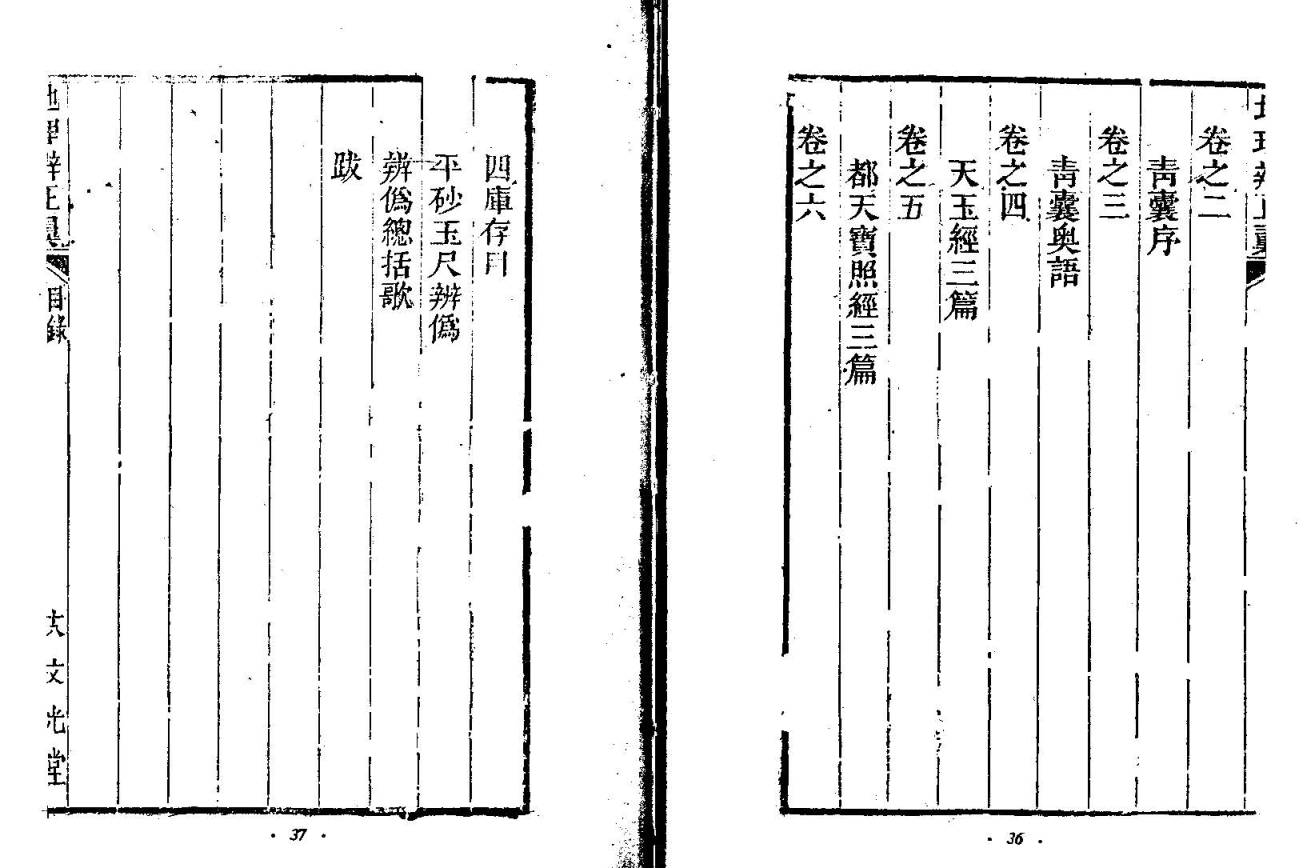 地理辨正翼
卷之二
青囊序
卷之三
青囊奧語
卷之四
天玉經三篇
卷之五
都天寶照經三篇
卷之六
· 36 ·
四庫存目
平砂玉尺辨僞
辨僞總括歌
跋
地理辨正翼 目錄
大文光堂
· 37 ·